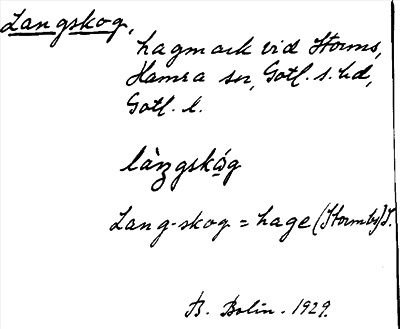 Langskog,
hagmark vid Storms,
Hamra sn, Gotl. s. hd,
Gotl. l.
làŋgskóg
Lang-skog = hage (Stormby) S.
B. Bolin. 1929.